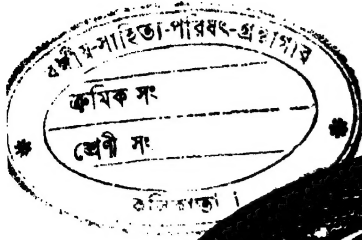 বঙ্গীয়-সাহিত্য-পারিষৎ-গ্রন্থাগার
ক্রমিক সং
শ্রেণী সং
কলিকাতা ।